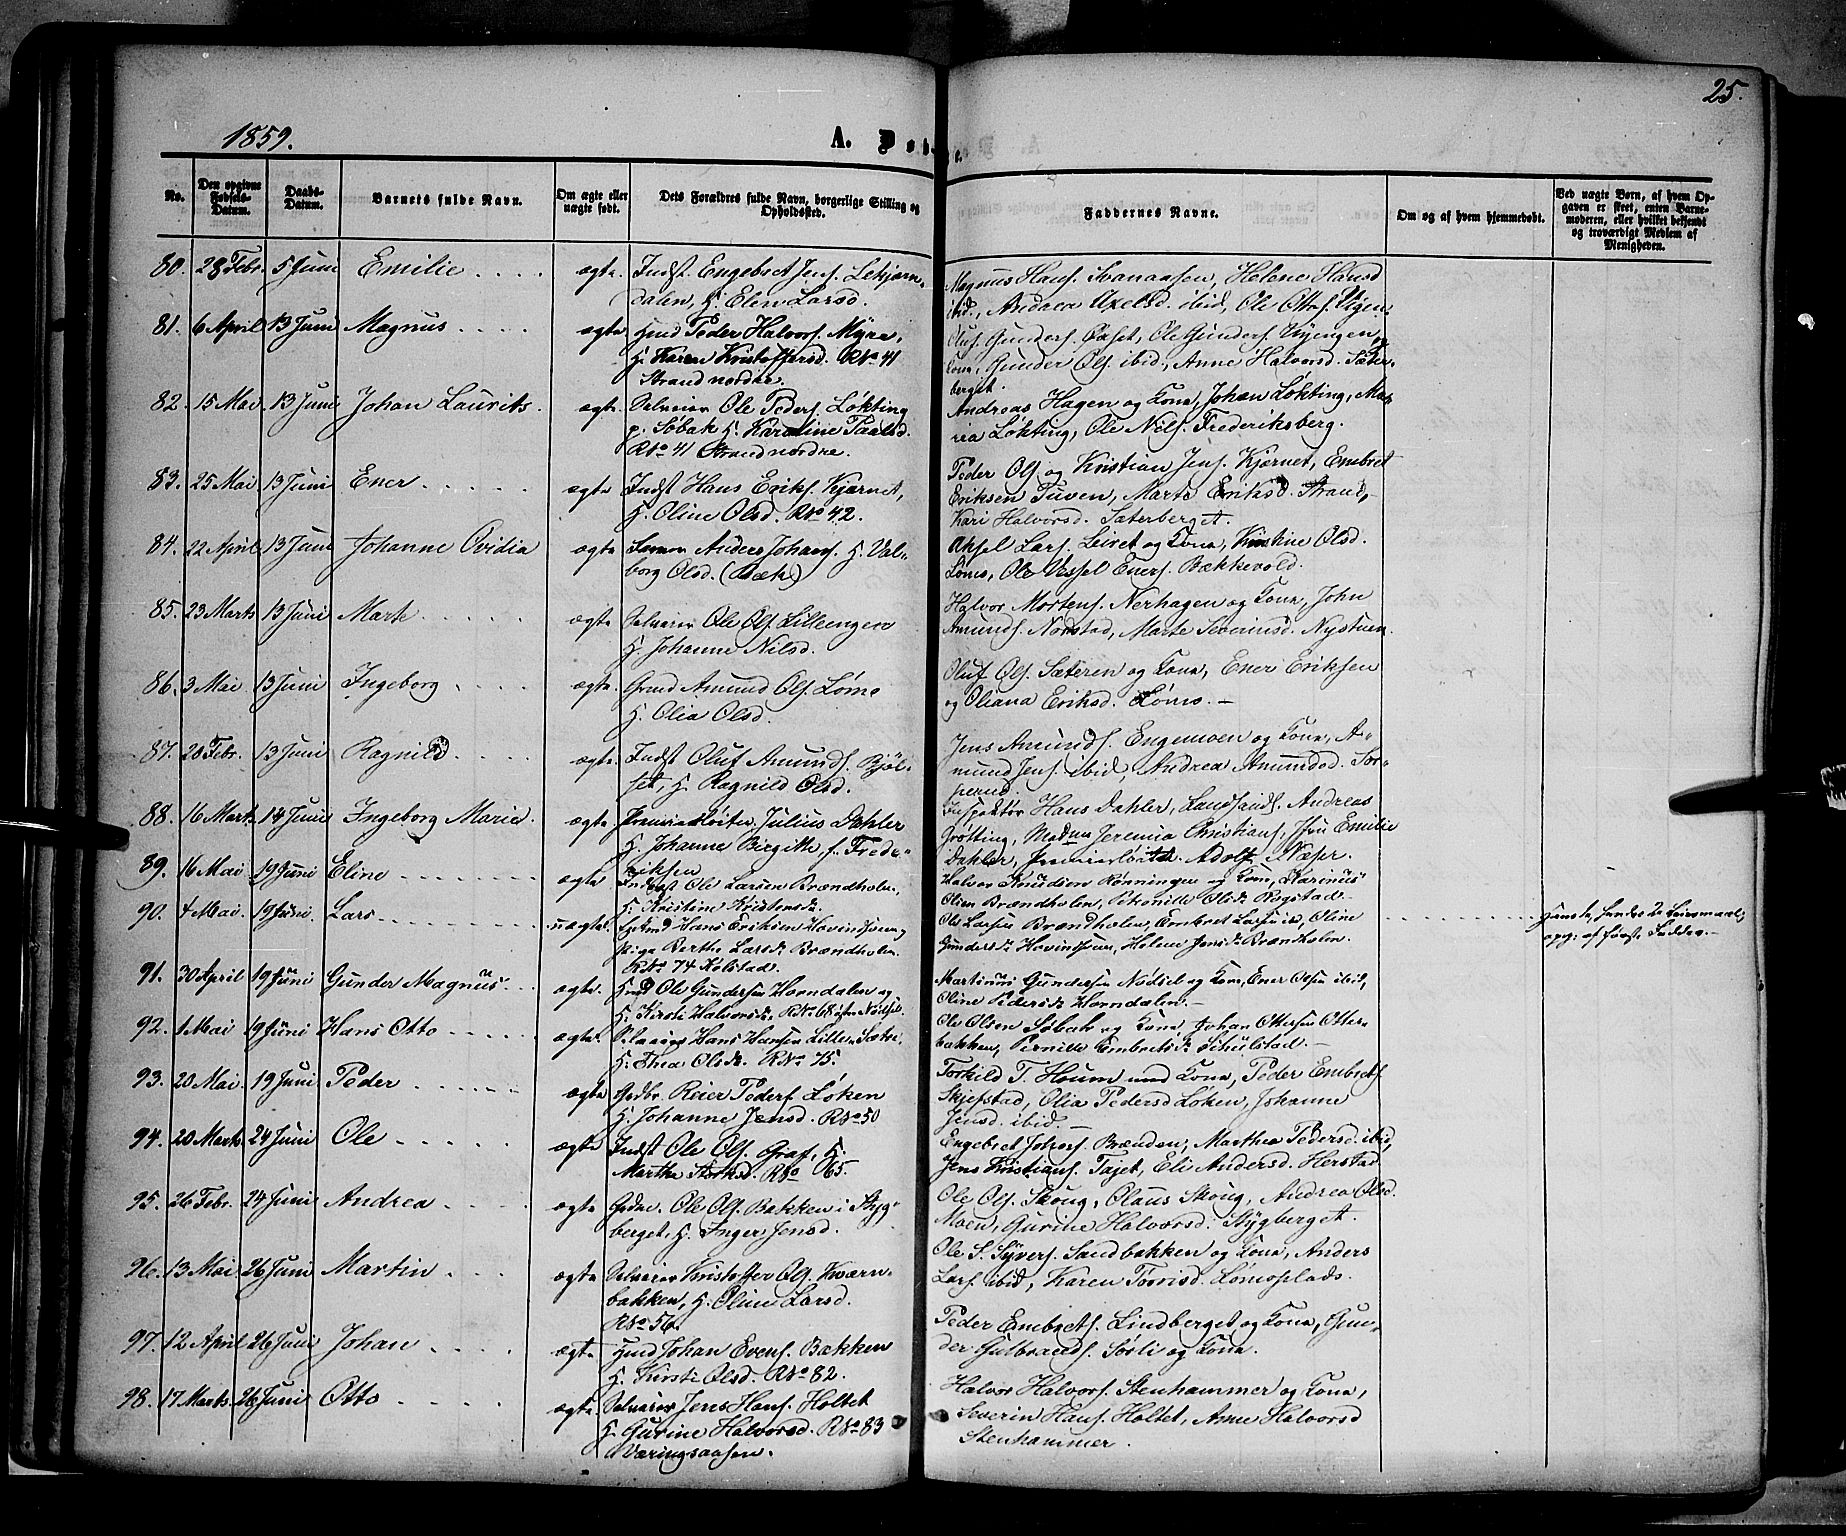 25.
1859.
A. Døbte.
No.
Den opgivne Fødsels-Datum.
Daabs-Datum.
Barnets fulde Navn.
Om ægte eller uægte født.
Dets Forældres fulde Navn, borgerlige Stilling og Opholdssted.
Faddernes Navne.
Om og af hvem hjemmedøbt.
Ved uægte Børn, af hvem Opgaven er skeet, enten Barnemoderen, eller hvilket bekjendt og troværdigt Medlem af Menigheden.
80. 28 Febr. 5 Juni Emilie ægte. Indst Engebret Jens.
dalen, H. Elen Larsd.
Magnus Hans. Svenaasen, Helene Hansd
ibid, Andrea Axelsd. ibid, Ole Ottos.
81. 6 April 13 Juni Magnus ægte Peder Halvors. Myre,
H. Karen Kristoffersd. RNo 41
Strand nordre.
Oluf Gunders. Ole Gunders. Kyengen
Kone, Gunder Ols. ibid, Anne Halvorsd. Sæter-
berget.
82. 15 Mai 13 Juni Johan Laurits. ægte. Selveier Ole Peders. Løkting
p. Søbak H. Karoline Paalsd.
RNo 41 Strand nordre.
Andreas Hagen og Kone, Johan Løkting, Ma-
ria Løkting, Ole Nils. Frederiksberg.
83. 25 Mai 13 Juni Ener ægte Indst Hans Eriks. Kjærnet,
H. Oline Olsd. RNo 42.
Peder Ols. og Kristian Jens. Kjærnet, Embret
Eriksen Tuven, Marte Eriksd. Strand,
Kari Halvorsd. Sæterberget.
84. 22 April 13 Juni Johanne Ovidia ægte Anders Johans. H. Val-
borg Olsd. (Bæk)
Aksel Lars. Leiret og Kone, Kristine Olsd.
Lømo, Ole Vessel Eners. Bækkevold.
85. 23 Marts 13 Juni Mart ægte Selveier Ole Ols. Lillengen
H. Johanne Nilsd.
Halvor Mortens. Nerhagen og Kone, John
Amunds. Nordstad, Marte Severinsd. Nystuen.
86. 3 Mai 13 Juni Ingeborg ægte Amund Ols. Lømo
H. Olia Olsd.
Oluf Ols. Sæteren og Kone, Ener Eriksen
og Oliana Eriksd. Lømo.
87. 20 Febr. 13 Juni Ragnild ægte Indst Oluf Amunds. Bjøl-
set, H. Ragnild Olsd.
Jens Amunds. Engemoen og Kone, A-
mund Jens. ibid, Andrea Amundsd.
88. 16 Marts 14 Juni Ingeborg Marie ægte Premierløitn. Julius Dahler
H. Johanne Birgitte, f. Frede-
riksen
Inspektør Hans Dahler, Landhandl. Andreas
Grøtting, Madm Jeremia Christians., Jfru Emilie
Dahler, Premierløitn. Adolf Næser.
89. 16 Mai 19 Juni Eline ægte Ole Larsen Brændholen,
H. Kristine Kristensdr.
Halvor Knudsen Rønningen og Kone, Karinus
Olsen Brændholen, Petronille Olsdr Rogstad.
90. 4 Mai. 19 Juni. Lars uægte Hans Eriksen
pige Berthe Larsdr Brændholen
RNo 74 Kolstad.
Ole Larsen Brændholen, Embret Larsen ibid, Oline
Gundersdr Helene Jensdr Brændholen.
91. 30 April 19 Juni Gunder Magnus ægte. Ole Gundersen Horndalen og
H. Kirsti Halvorsdr. RNo 68
Martinus Gundersen Nødset og Kone, Ener Olsen ibid,
Oline Pedersdr Horndalen.
92. 1 Mai 19 Juni Hans Otto ægte. Selveier Hans Hansen Lillen Sætre,
H. Olsdr. RNo 75.
Ole Olsen Søbak og Kone, Johan Ottersen Otter-
bakken, Pernille Embretsdr Schulstad.
93. 20 Mai 19 Juni Peder ægte Gdbr. Reier Peders Løken
H. Johanne Jensd. RNo 50
Torkild T. Houm med Kone, Peder Embrets.
Skjefstad, Olia Pedersd Løken, Johanne
Jensd. ibid.
94. 20 Marts 24 Juni Ole ægte Indst Ole Ols. Graf, H.
Marthe RNo 65.
Engebret Johns. Brænden, Marthea Pedersd. ibid,
Jens Kristians. Tajet, Eli Andersd. Herstad
95. 26 Febr. 24 Juni Andrea ægte Ole Ols. Bakken i Styg-
berget, H. Inger Jensd.
Ole Ols. Skoug, Olaus Skoug, Andrea Olsd.
Moen, Gurine Halvorsd. Stygberget.
96. 13 Mai 26 Juni Martin ægte Selveier Kristoffer Ols. Kværn-
bakken, H. Oline Larsd.
RNo 56.
Ole S. Syvers. Sandbakken og Kone, Anders
Lars. ibid, Karen Lømoplads.
97. 12 April 26 Juni Johan ægte Johan Evens. Bakken
H. Kirsti Olsd. RNo 82.
Peder Embrets. Lindberget og Kone, Gun-
der Gulbrands. Sørli og Kone.
98. 17 Marts 26 Juni Otto ægte Selveier Jens Hans. Holtet
H. Gurine Halvorsd. RNo 83
Væringsaasen.
Halvor Halvors. Stenhammer og Kone,
Severin Hans. Holtet, Anne Halvorsd
Stenhammer.